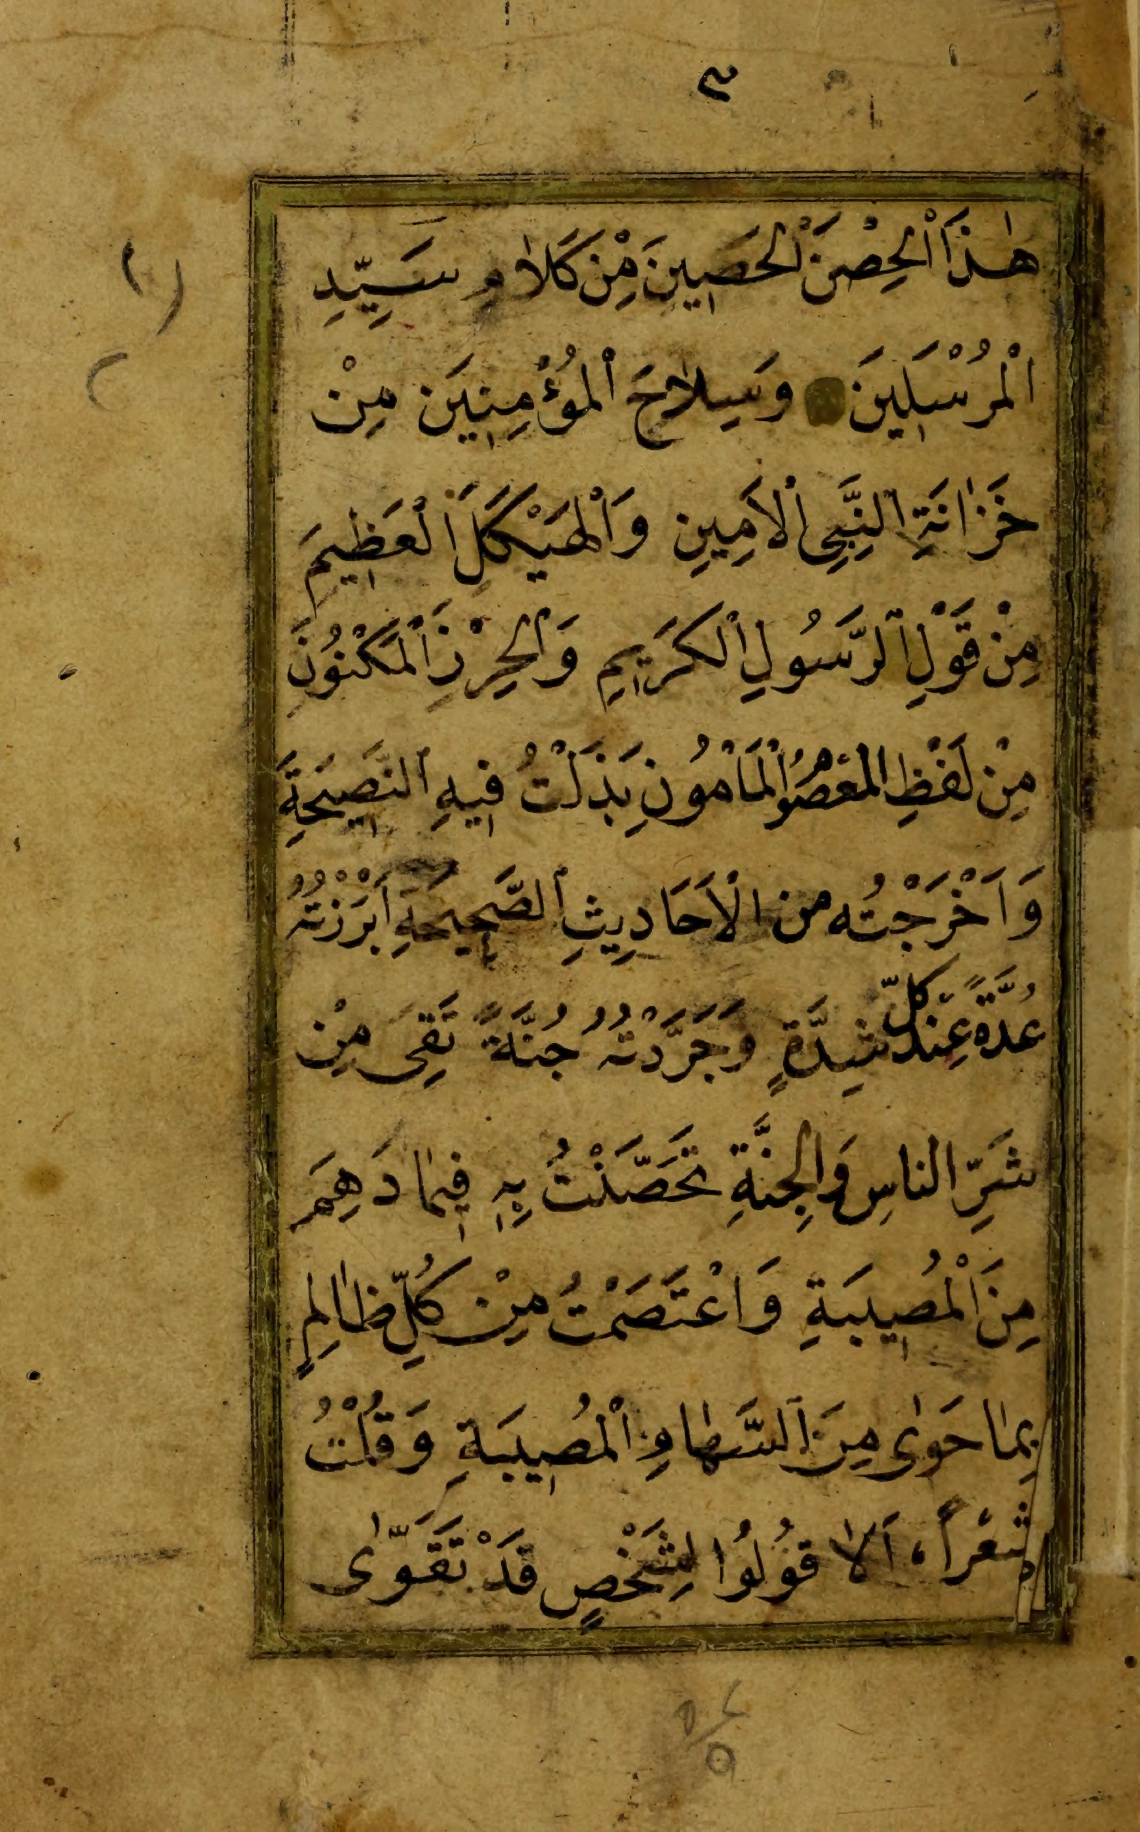 ٣
هٰذَا الْحِصْنَ الْحَصِينَ مِنْ كَلَامِ سَيِّدِ
الْمُرْسَلِينَ وَسِلَاحَ الْمُؤْمِنِينَ مِنْ
خَزَانَةِ النَّبِىِّ الْاَمِينِ وَالْهَيْكَلَ الْعَظِيمَ
مِنْ قَوْلِ الرَّسُولِ الْكَرِيمِ وَالْحِرْزِ الْمَكْنُونَ
مِنْ لَفْظِ الْمَعْصُومِ الْمَأْمُونِ بَذَلْتُ فِيهِ النَّصِيحَةَ
وَاَخْرَجْتُه من الْاَحَادِيثِ الصَّحِيحَةِ اَبْرَزْتُهُ
عُدَّةً عِنْدَ كُلِّ شِدَّةٍ وَجَرَّدْتُهُ جُنَّةً تَقِى مِنْ
شَرِّ الناسِ وَالْجِنَّةِ تَحَصَّنْتُ بِهِ فِيمَا دَهِمَ
مِنَ الْمُصِيبَةِ وَاعْتَصَمْتُ مِنْ كُلِّ ظَالِمٍ
بِمَا حَوٰى مِنَ السِّهَامِ الْمُصِيبَةِ وَقُلْتُ
شِعْراً، اَلَا قُولُوا لِشَخْصٍ قَدْ تَقَوّٰى